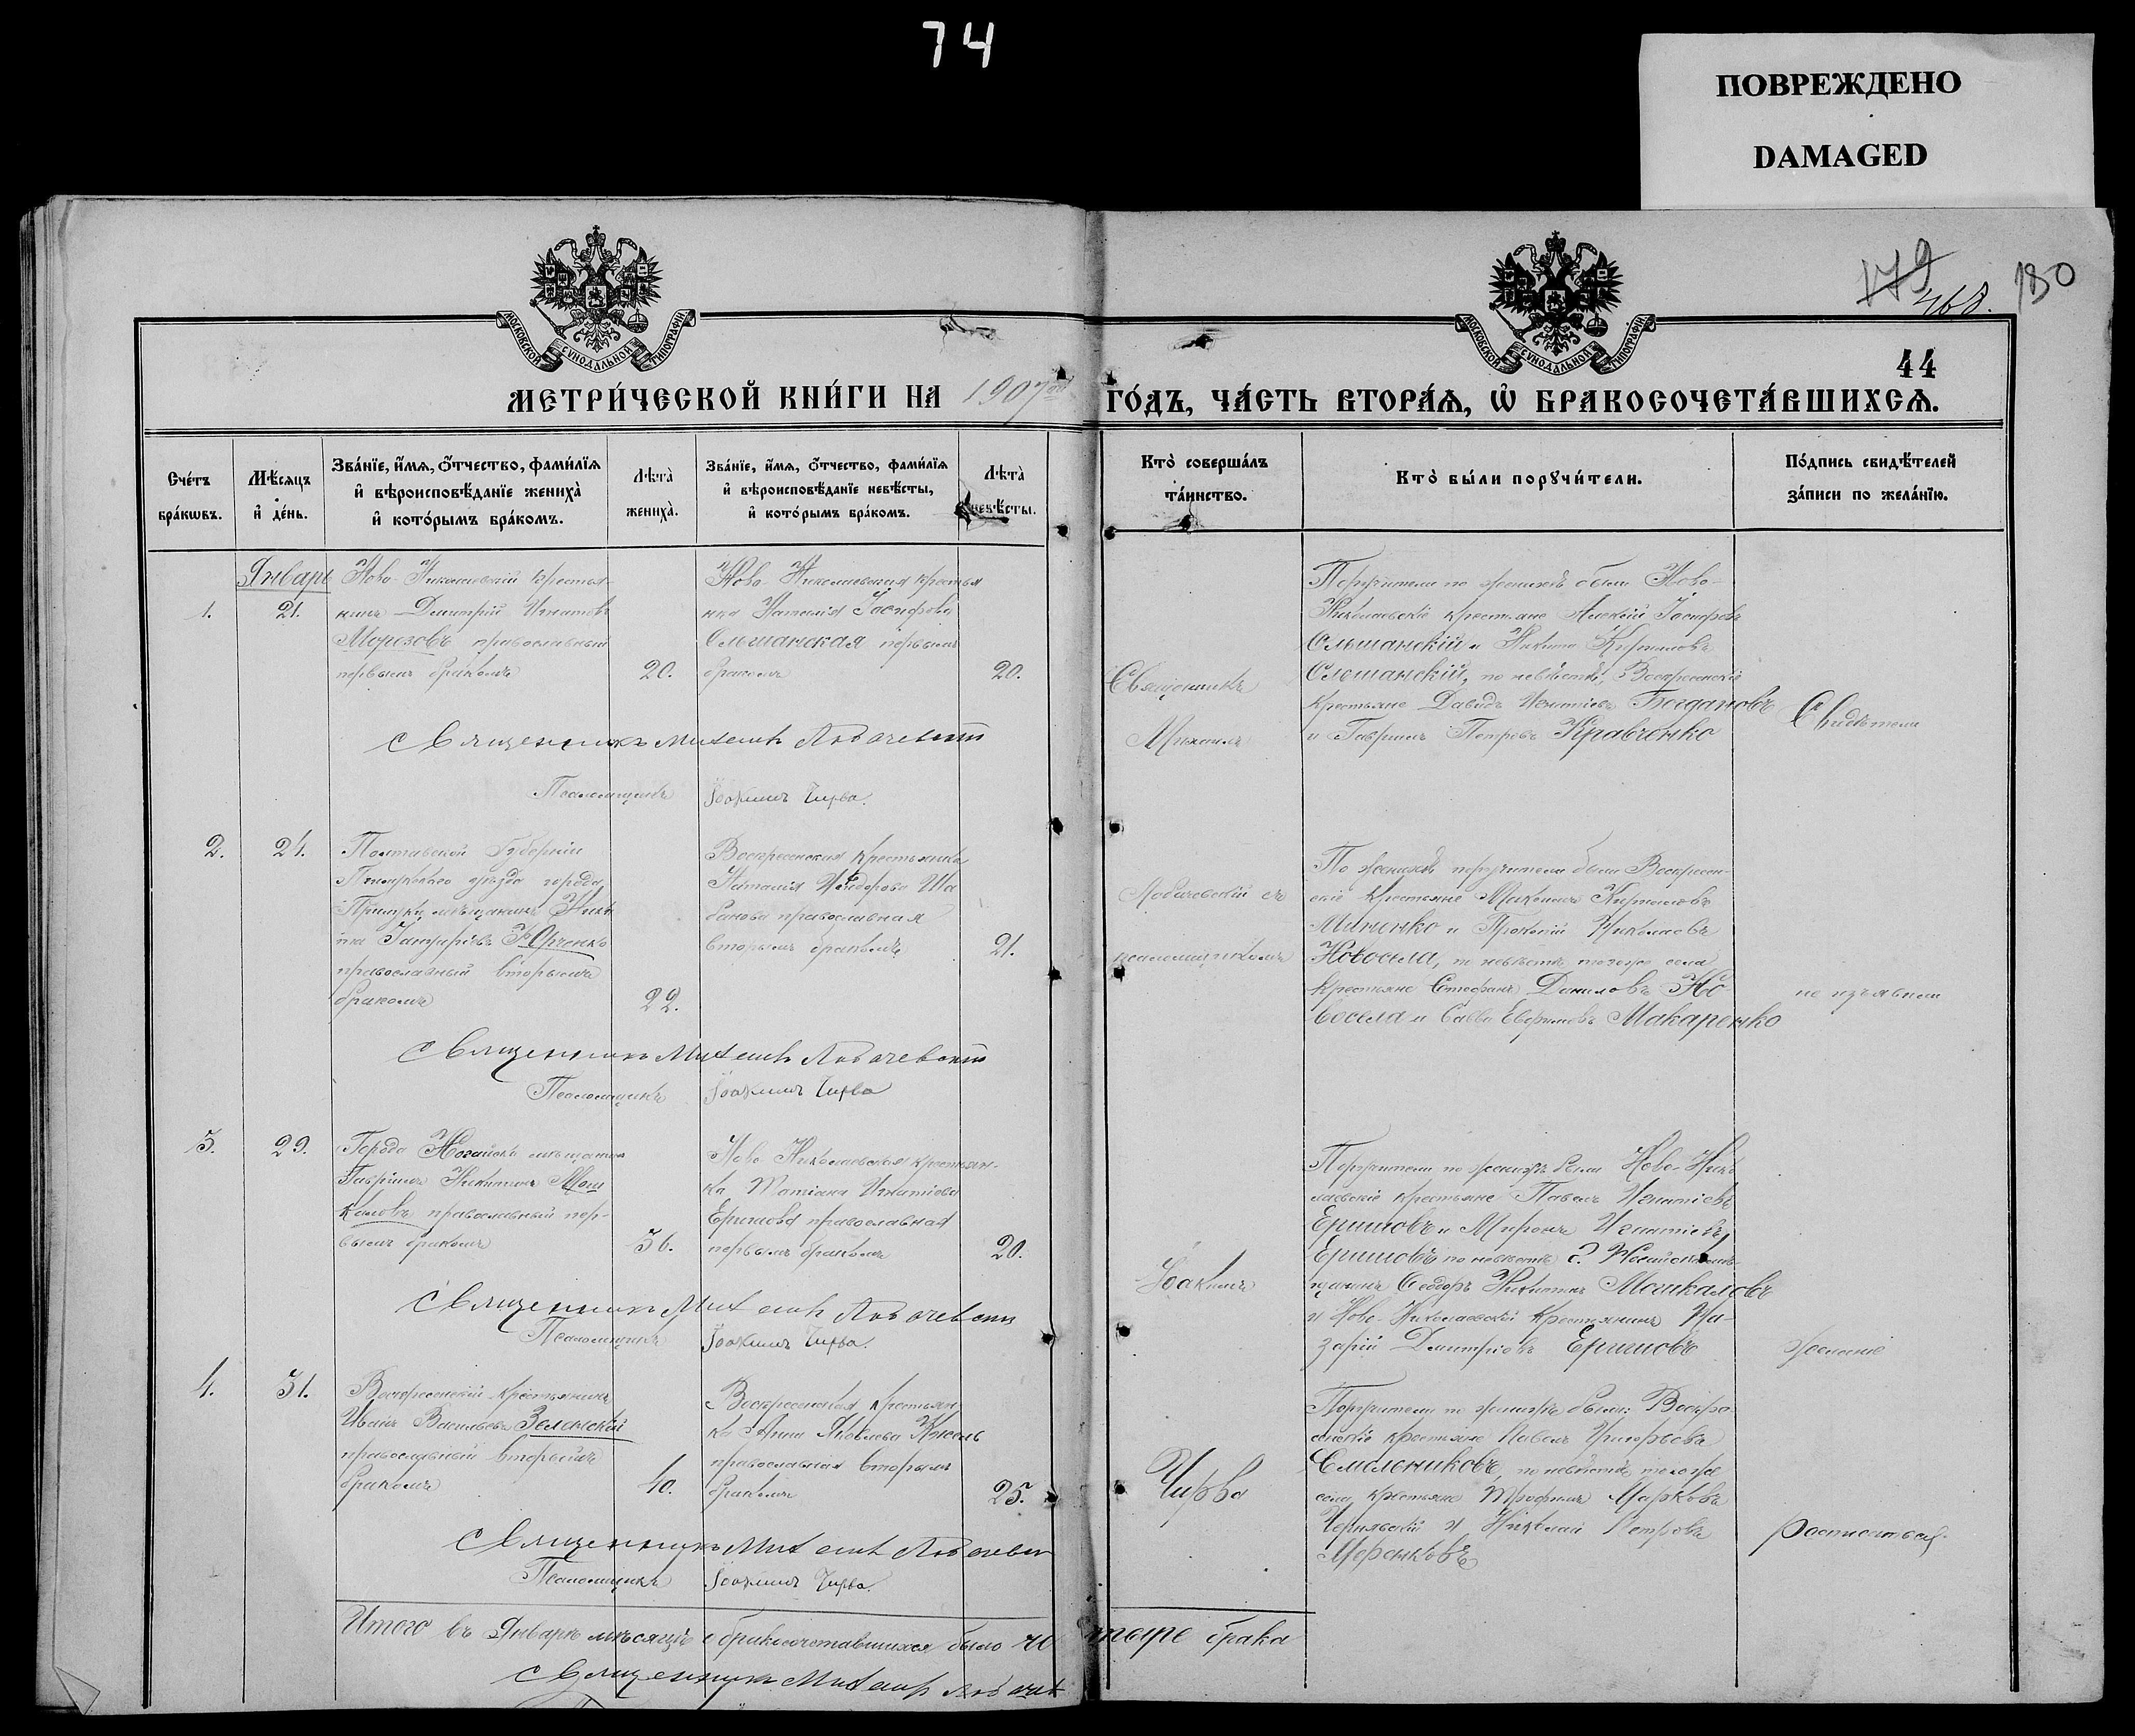 74
ПОВРЕЖДЕНО
DAMAGED
179
468.
180
МОСКОВСКОЙ СУНОДАЛЬНОЙ ТИПОГРАФІИ
МОСКОВСКОЙ СУНОДАЛЬНОЙ ТИПОГРАФІИ
44
МЕТРИ́ЧЕСКОЙ КНИ́ГИ НА 1907 ГО́ДЪ, ЧА́СТЬ ВТОРА́Ѧ, Ѡ҆ БРАКОСОЧЕТА́ВШИХСѦ.
Сче́тъ
бра́кѡвъ.
Мѣ́сѧцъ
и҆ де́нь.
Зва́нїе, и҆́мѧ, ѻ҆́тчество, фами́лїѧ
и҆ вѣроисповѣ́данїе жениха̀
и҆ кото́рымъ бра́комъ.
Лѣта̀
жениха̀.
Зва́нїе, и҆́мѧ, ѻ҆́тчество, фами́лїѧ
и҆ вѣроисповѣ́данїе невѣ́сты,
и҆ кото́рымъ бра́комъ.
Лѣта̀
невѣ́сты.
Кто̀ соверша́лъ
та́инство.
Кто̀ бы́ли порꙋчи́тели.
По́дпись свидѣ́телей
за́писи по жела́нїю.
Январь
1.
21.
Ново-Николаевскій крестья-
нинъ Дмитрій Игнатовъ
Морозовъ православный
первымъ бракомъ
20.
Ново-Николаевская крестья
нка Наталія Іосифова
Ольшанская первымъ
бракомъ
20.
Поручители по женихѣ были Ново-
Николаевскіе крестьяне Алексій Іосифовъ
Ольшанскій и Никита Кириловъ
Ольшанскій, по невѣстѣ, Воскресенскіе
крестьяне Давидъ Игнатіевъ Богдановъ
и Гавріилъ Петровъ Кравченко
Священникъ Михаилъ
Псаломщикъ Іоакимъ Чирва.
2.
24.
Полтавской Губерніи
уѣзда города
мѣщанинъ
православный вторымъ
бракомъ
22.
Воскресенская крестьянка
Наталія
православная
вторымъ бракомъ
21.
По женихѣ поручители были Воскресен-
скіе крестьяне Михаилъ Кириловъ
Миненко и Прокопій Николаевъ
Новосела, по невѣстѣ тогоже села
крестьяне Стефанъ Даниловъ Но
восела и Савва Евфимовъ Макаренко
Священникъ Михаилъ
Псаломщикъ Іоакимъ Чирва
3.
29.
Города Ногайска мѣщанинъ
Гавріилъ Никитинъ Мош
каловъ православный пер-
вымъ бракомъ
36.
Ново-Николаевская крестьян-
ка Татіана Игнатіева
Ершова православная
первымъ бракомъ
20.
Поручители по женихѣ были Ново-Нико
лаевскіе крестьяне Павелъ Игнатіевъ
Ершовъ и Миронъ Игнатіевъ
Ершовъ по невѣстѣ г. Ногайска мѣ-
щанинъ Ѳеодоръ Никитинъ Мошкаловъ
и Ново-Николаевскій крестьянинъ На-
зарій Дмитріевъ Ершовъ
Священникъ Михаилъ
Псаломщикъ Іоакимъ Чирва.
4.
31.
Воскресенскій крестьянинъ
Иванъ Васильевъ Зеленскій
православный вторымъ
бракомъ
40.
Воскресенская крестьян
ка Анна Яковлева
православная вторымъ
бракомъ
25.
Поручители по женихѣ были: Воскре
сенскіе крестьяне Павелъ Григорьевъ
Смольниковъ, по невѣстѣ тогоже
села крестьяне Трофимъ Марковъ
Чернявскій и Николай Петровъ
Священникъ Михаилъ
Псаломщикъ Іоакимъ Чирва.
Священникъ
Михаилъ
съ
псаломщикомъ
Іоакимъ
Чирва
Свидѣтели
не изъявили
желанія
росписаться.
Итого въ Январѣ мѣсяцѣ бракосочетавшихся было четыре брака
Священникъ Михаилъ